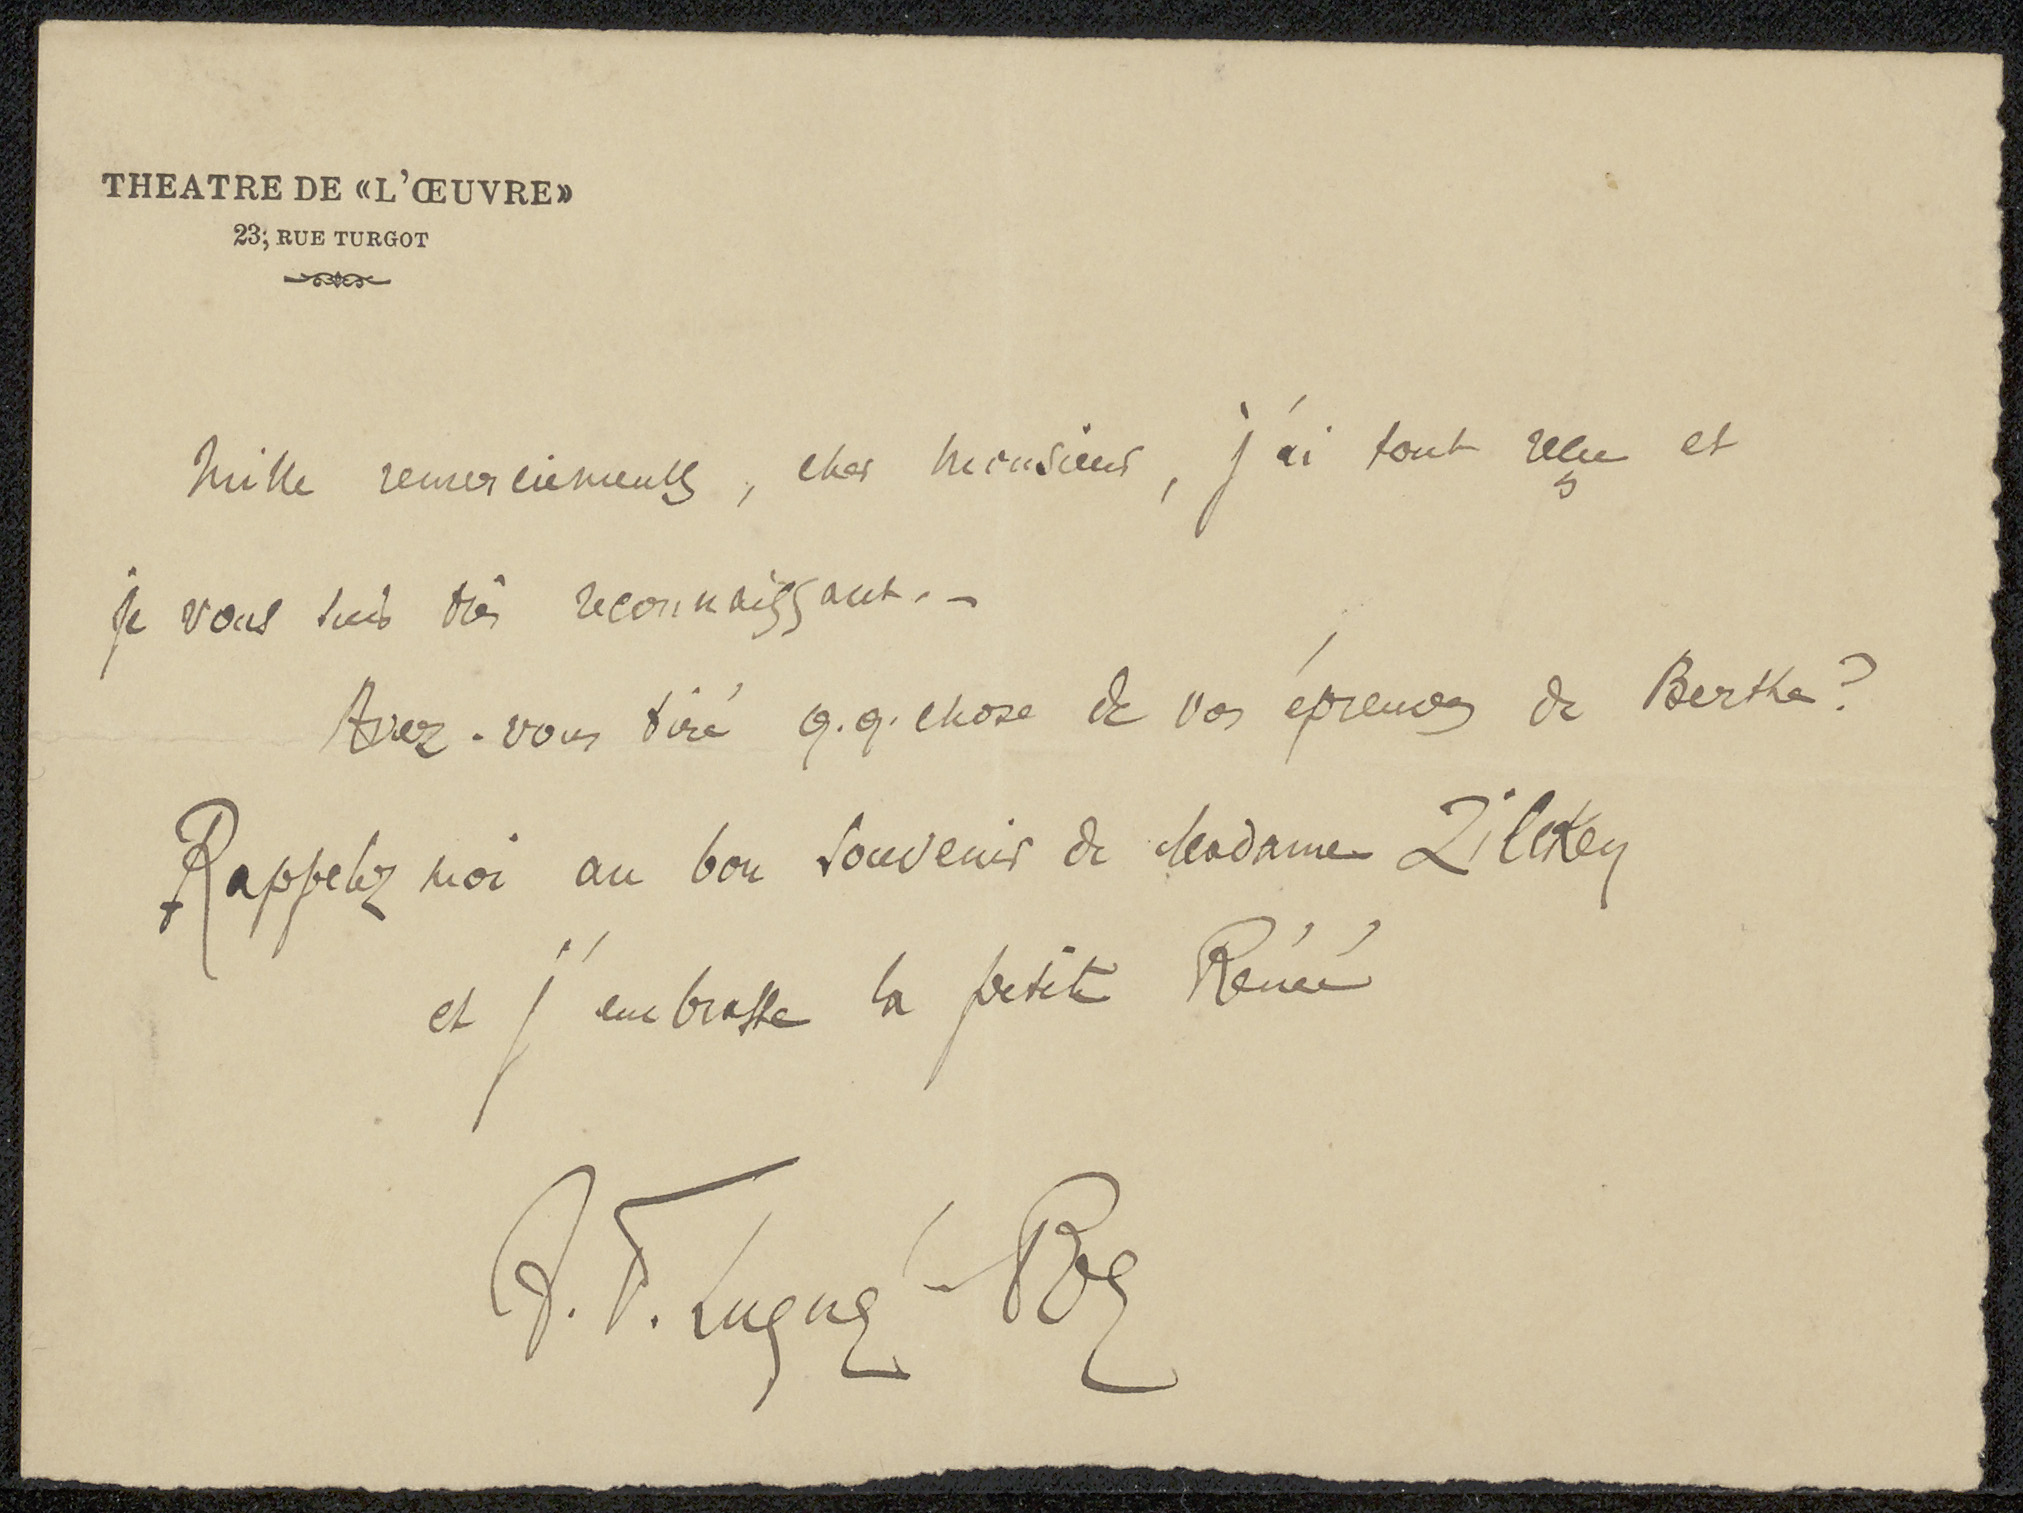 THEATRE DE «L'ŒUVRE»
23, RUE TURGOT
Mille remerciements, cher Monsieur, j'ai tout reçu et
je vous suis très reconnaissant. –
Avez-vous tiré q.q. chose de vos épreuves de Berthe?
Rappelez moi au bon souvenir de Madame Zilcken
et j'embrasse la petite Renée
A. F. Lugné-Poe